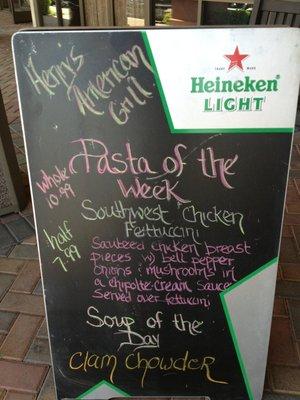 Henry's
American
Grill
TRADE MARK
Heineken
LIGHT
Pasta of the
Week
whole
10.99
half
7.99
Southwest Chicken
Fettuccini
Sauteed chicken breast
pieces w/ bell pepper
onions & mushrooms in
a chipotle cream sauce
served over fettuccini
Soup of the
Day
Clam Chowder